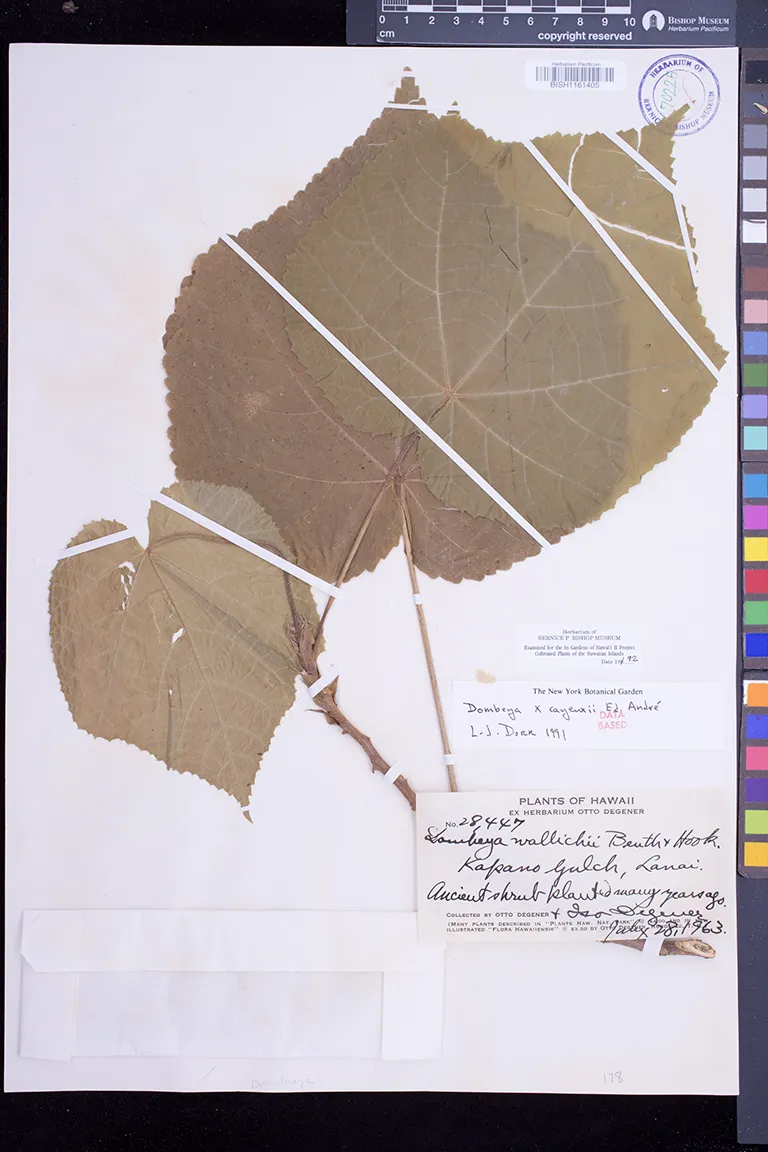 0 1 2 3 4 5 6 7 8 9 10
cm
copyright reserved
BISHOP MUSEUM
Herbarium Pacificum
Herbarium Pacificum
BISH1161405
HERBARIUM OF
BISHOP MUSEUM
Herbarium of
BERNICE P. BISHOP MUSEUM
Examined for the In Gardens of Hawai'i II Project
Cultivated Plants of the Hawaiian Islands
Date 1992
The New York Botanical Garden
Dombeya x cayeuxii Ed. André
DATA
BASED
L.J. Dorr 1991
PLANTS OF HAWAII
EX HERBARIUM OTTO DEGENER
No. 28,447
Dombeya wallichii Benth & Hook.
Kapano Gulch, Lanai.
Ancient shrub planted many years ago.
COLLECTED BY OTTO DEGENER & Isa Degener
(MANY PLANTS DESCRIBED IN "PLANTS HAW. NAT. PARK"
ILLUSTRATED "FLORA HAWAIIENSIS" @ $3.50 BY
28, 1963.
Dombeya
178